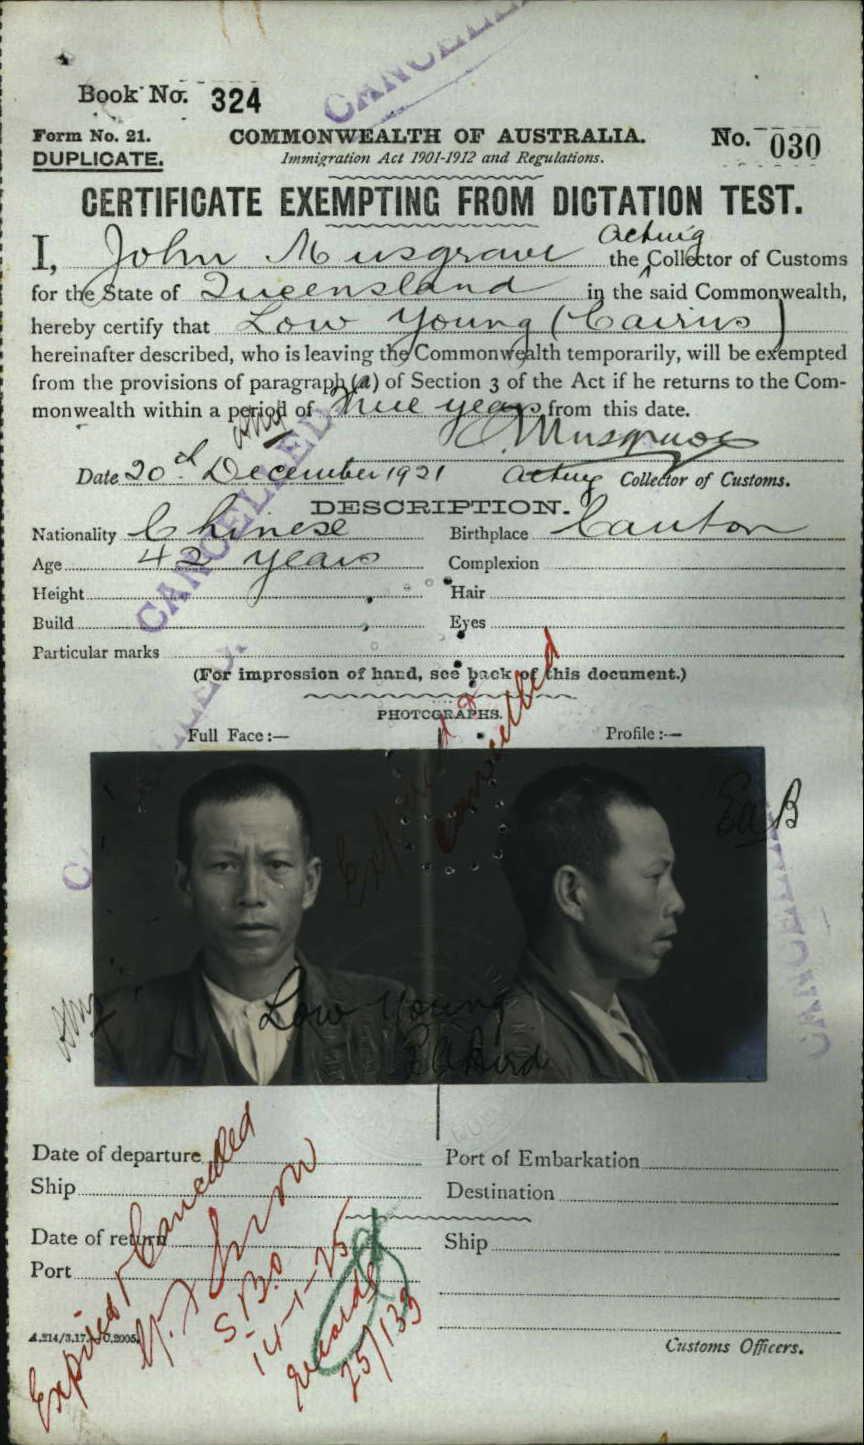 CANCELLED
Book No. 324
Form No. 21.
COMMONWEALTH OF AUSTRALIA.
No. 030
DUPLICATE.
Immigration Act 1901-1912 and Regulations.
CERTIFICATE EXEMPTING FROM DICTATION TEST.
I, John Musgrave the Acting Collector of Customs
for the State of Queensland in the said Commonwealth,
hereby certify that Low Young (Cairns)
hereinafter described, who is leaving the Commonwealth temporarily, will be exempted
from the provisions of paragraph (a) of Section 3 of the Act if he returns to the Com-
monwealth within a period of three years from this date.
J Musgrave
Date 20th December 1921 Acting Collector of Customs.
CANCELLED
DESCRIPTION.
Nationality Chinese Birthplace Canton
Age 42 years Complexion
Height Hair
Build Eyes
Particular marks
(For impression of hand, see back of this document.)
PHOTOGRAPHS.
Full Face:— Profile:—
Expired & Cancelled
Low Young
CANCELLED
Date of departure Port of Embarkation
Ship Destination
Date of return Ship
Port
Expired & Cancelled
S.B.O
14-1-25
Records
25/133
A.214/3.17.
Customs Officers.